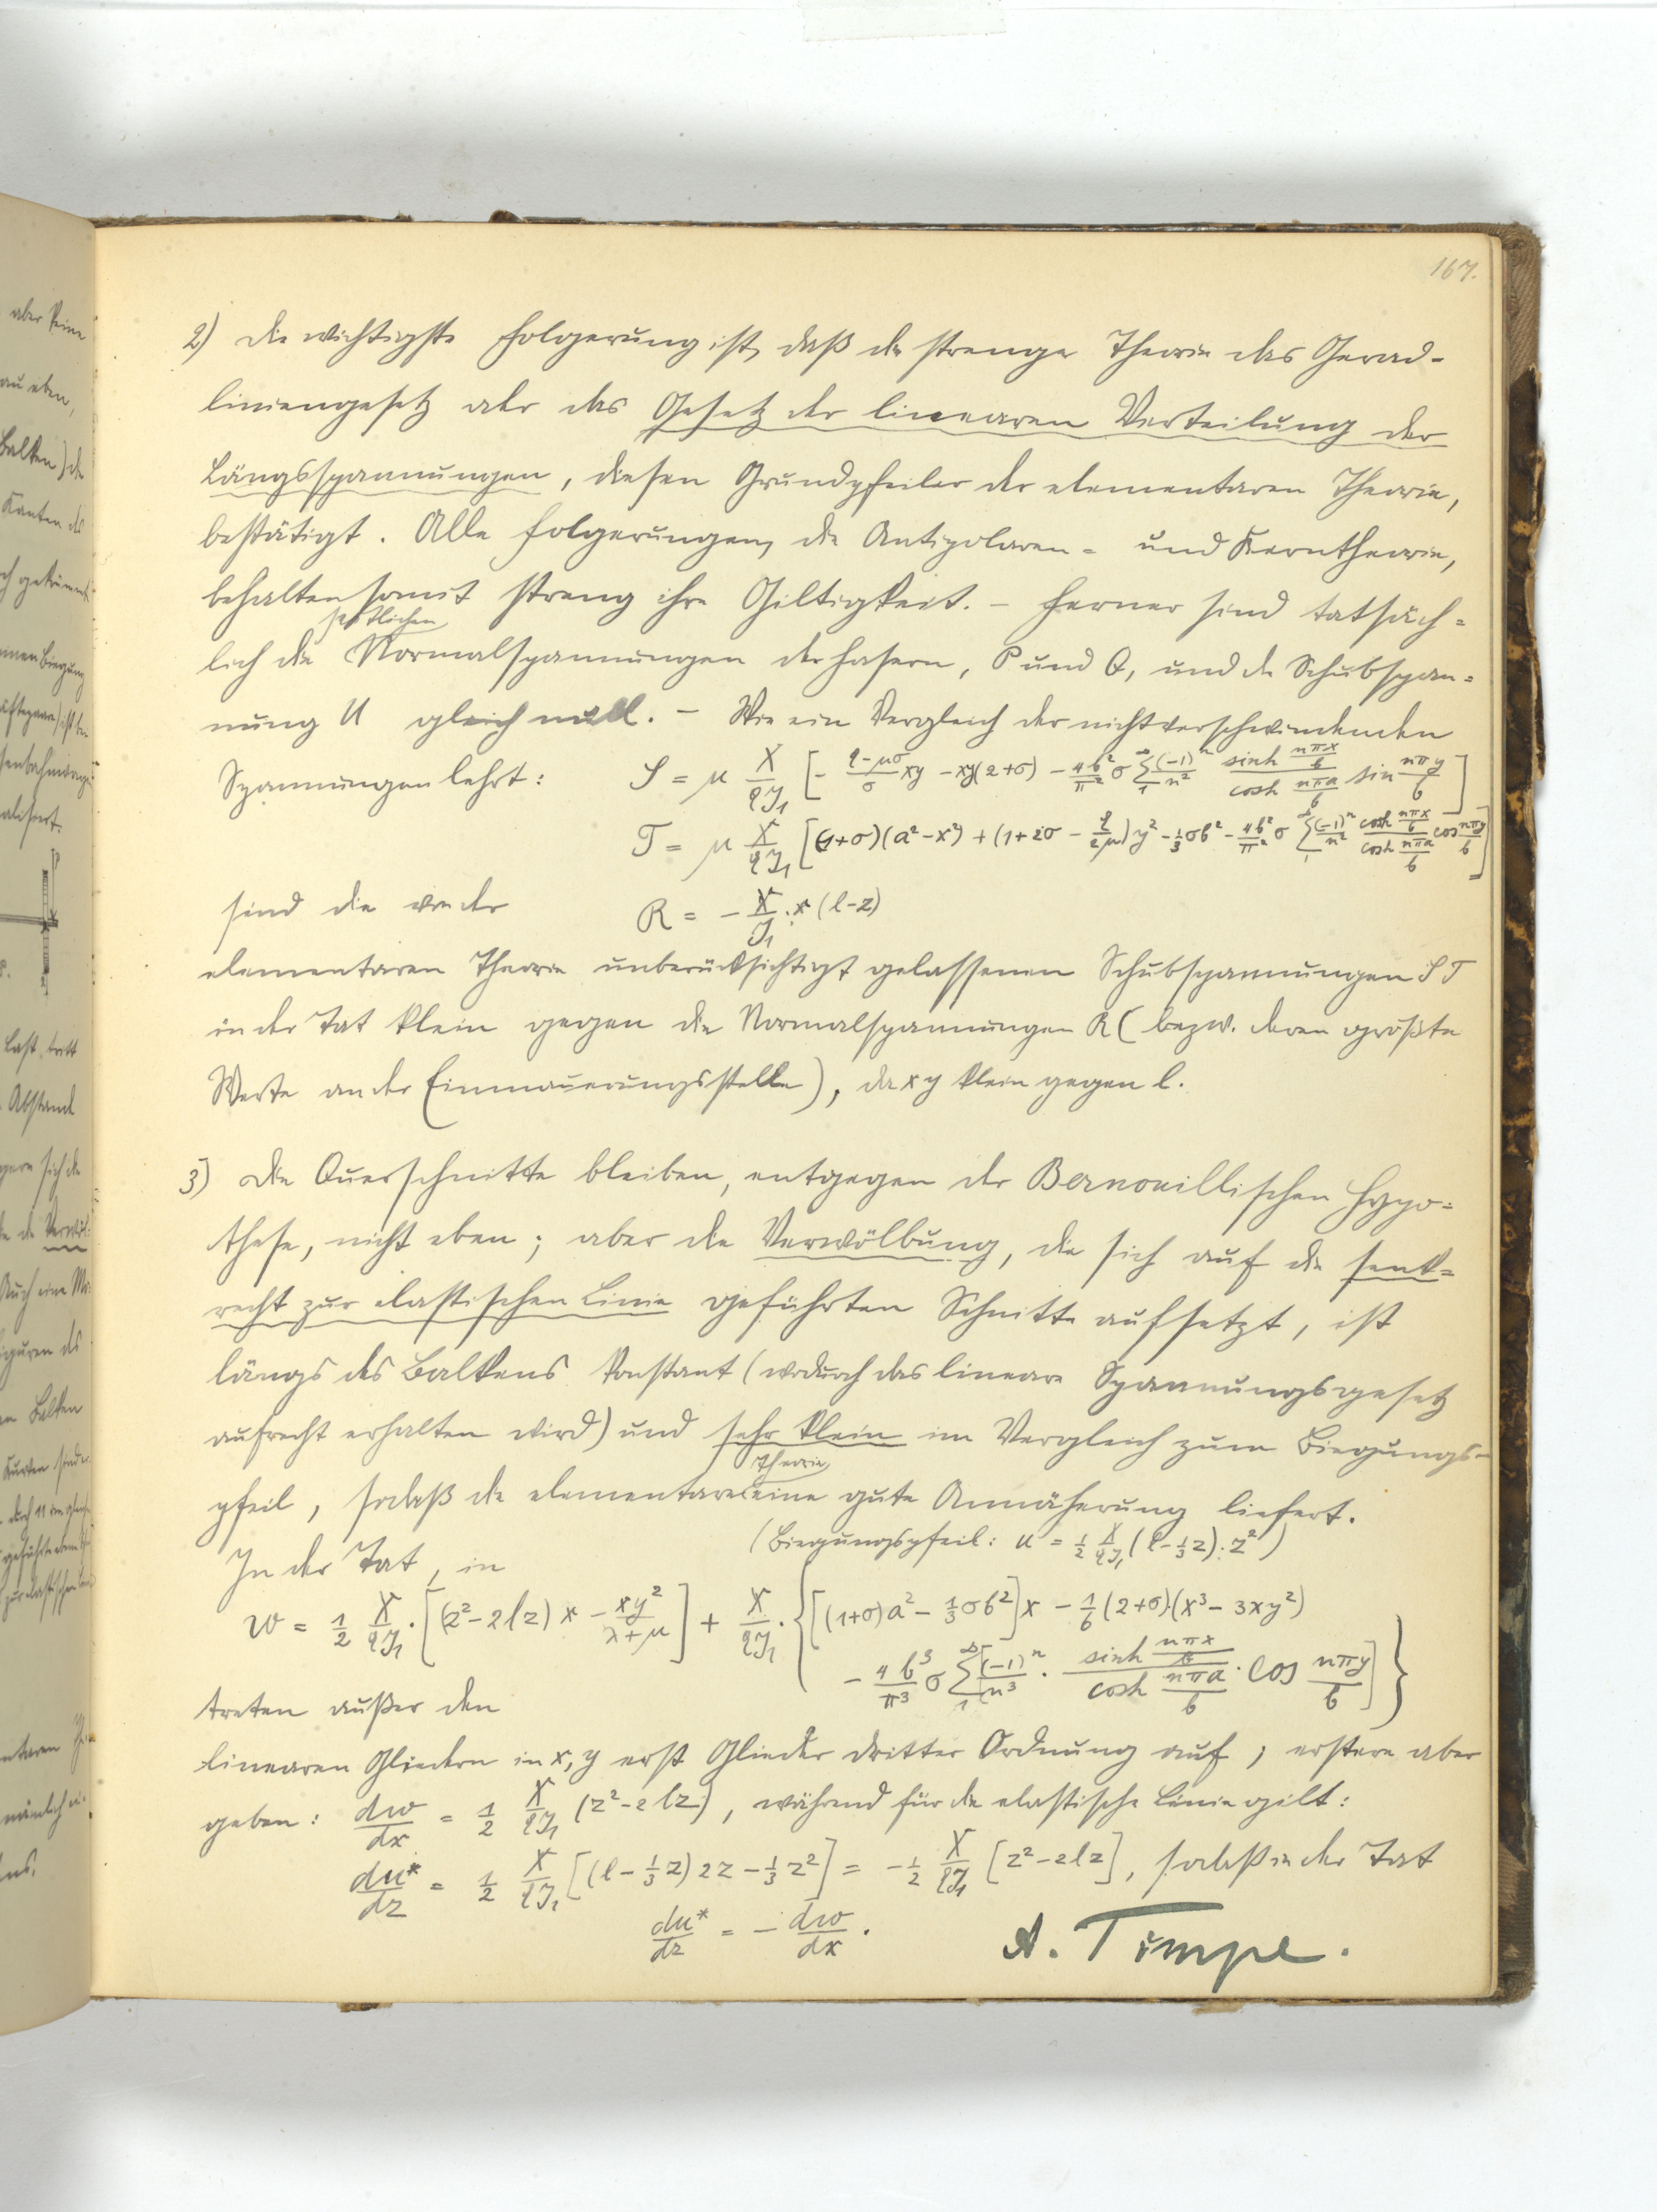 167.
2) Die wichtigste Folgerung ist, daß die strenge Theorie das Gerad-
liniengesetz oder das Gesetz der linearen Verteilung der
Längsspannungen, diesen Grundpfeiler der elementaren Theorie,
bestätigt. Alle Folgerungen, die Antipolaren- und Kerntheorie,
behalten somit streng ihre Giltigkeit. – Ferner sind tatsäch-
seitlichen
lich die Normalspannungen der Fasern, P und Q, und die Schubspan-
nung U gleich null. – Wie ein Vergleich der nichtverschwindenden
Spannungen lehrt: S = μ X/qJ₁ [ - (q-μσ)/σ xy - xy(2+σ) - 4b²/π² σ Σ₁^∞ (-1)ⁿ/n² (sinh nπx/b)/(cosh nπa/b) sin nπy/b ]
T = μ X/qJ₁ [(1+σ)(a²-x²) + (1+2σ - q/2μ) y² - 1/3 σb² - 4b²/π² σ Σ₁^∞ (-1)ⁿ/n² (cosh nπx/b)/(cosh nπa/b) cos nπy/b ]
sind die von der R = - X/J₁ · x (l-z)
elementaren Theorie unberücksichtigt gelassenen Schubspannungen S T
in der Tat klein gegen die Normalspannungen R (bezw. deren größte
Werte an der Einmauerungsstelle), da x y klein gegen l.
3) Die Querschnitte bleiben, entgegen der Bernouillischen Hypo-
these, nicht eben; aber die Verwölbung, die sich auf die senk-
recht zur elastischen Linie geführten Schnitte aufsetzt, ist
längs des Balkens konstant (wodurch das lineare Spannungsgesetz
aufrecht erhalten wird) und sehr klein im Vergleich zum Biegungs-
Theorie
pfeil, sodaß die elementare eine gute Annäherung liefert.
(Biegungspfeil: u = 1/2 X/qJ₁ (l - 1/3 z) · z²)
In der Tat, in
w = 1/2 X/qJ₁ · [(z²-2lz) x - xy²/(λ+μ)] + X/qJ₁ · { [(1+σ)a² - 1/3 σb²]x - 1/6 (2+σ)·(x³-3xy²)
- 4b³/π³ σ Σ₁^∞ [(-1)ⁿ/n³ · (sinh nπx/b)/(cosh nπa/b) · cos nπy/b ] }
treten außer den
linearen Gliedern in x, y erst Glieder dritter Ordnung auf; erstere aber
geben: dw/dx = 1/2 X/qJ₁ (z²-2lz), während für die elastische Linie gilt:
du*/dz = 1/2 X/qJ₁ [(l - 1/3 z) 2z - 1/3 z²] = - 1/2 X/qJ₁ [z²-2lz], sodaß in der Tat
du*/dz = - dw/dx .
A. Timpe.